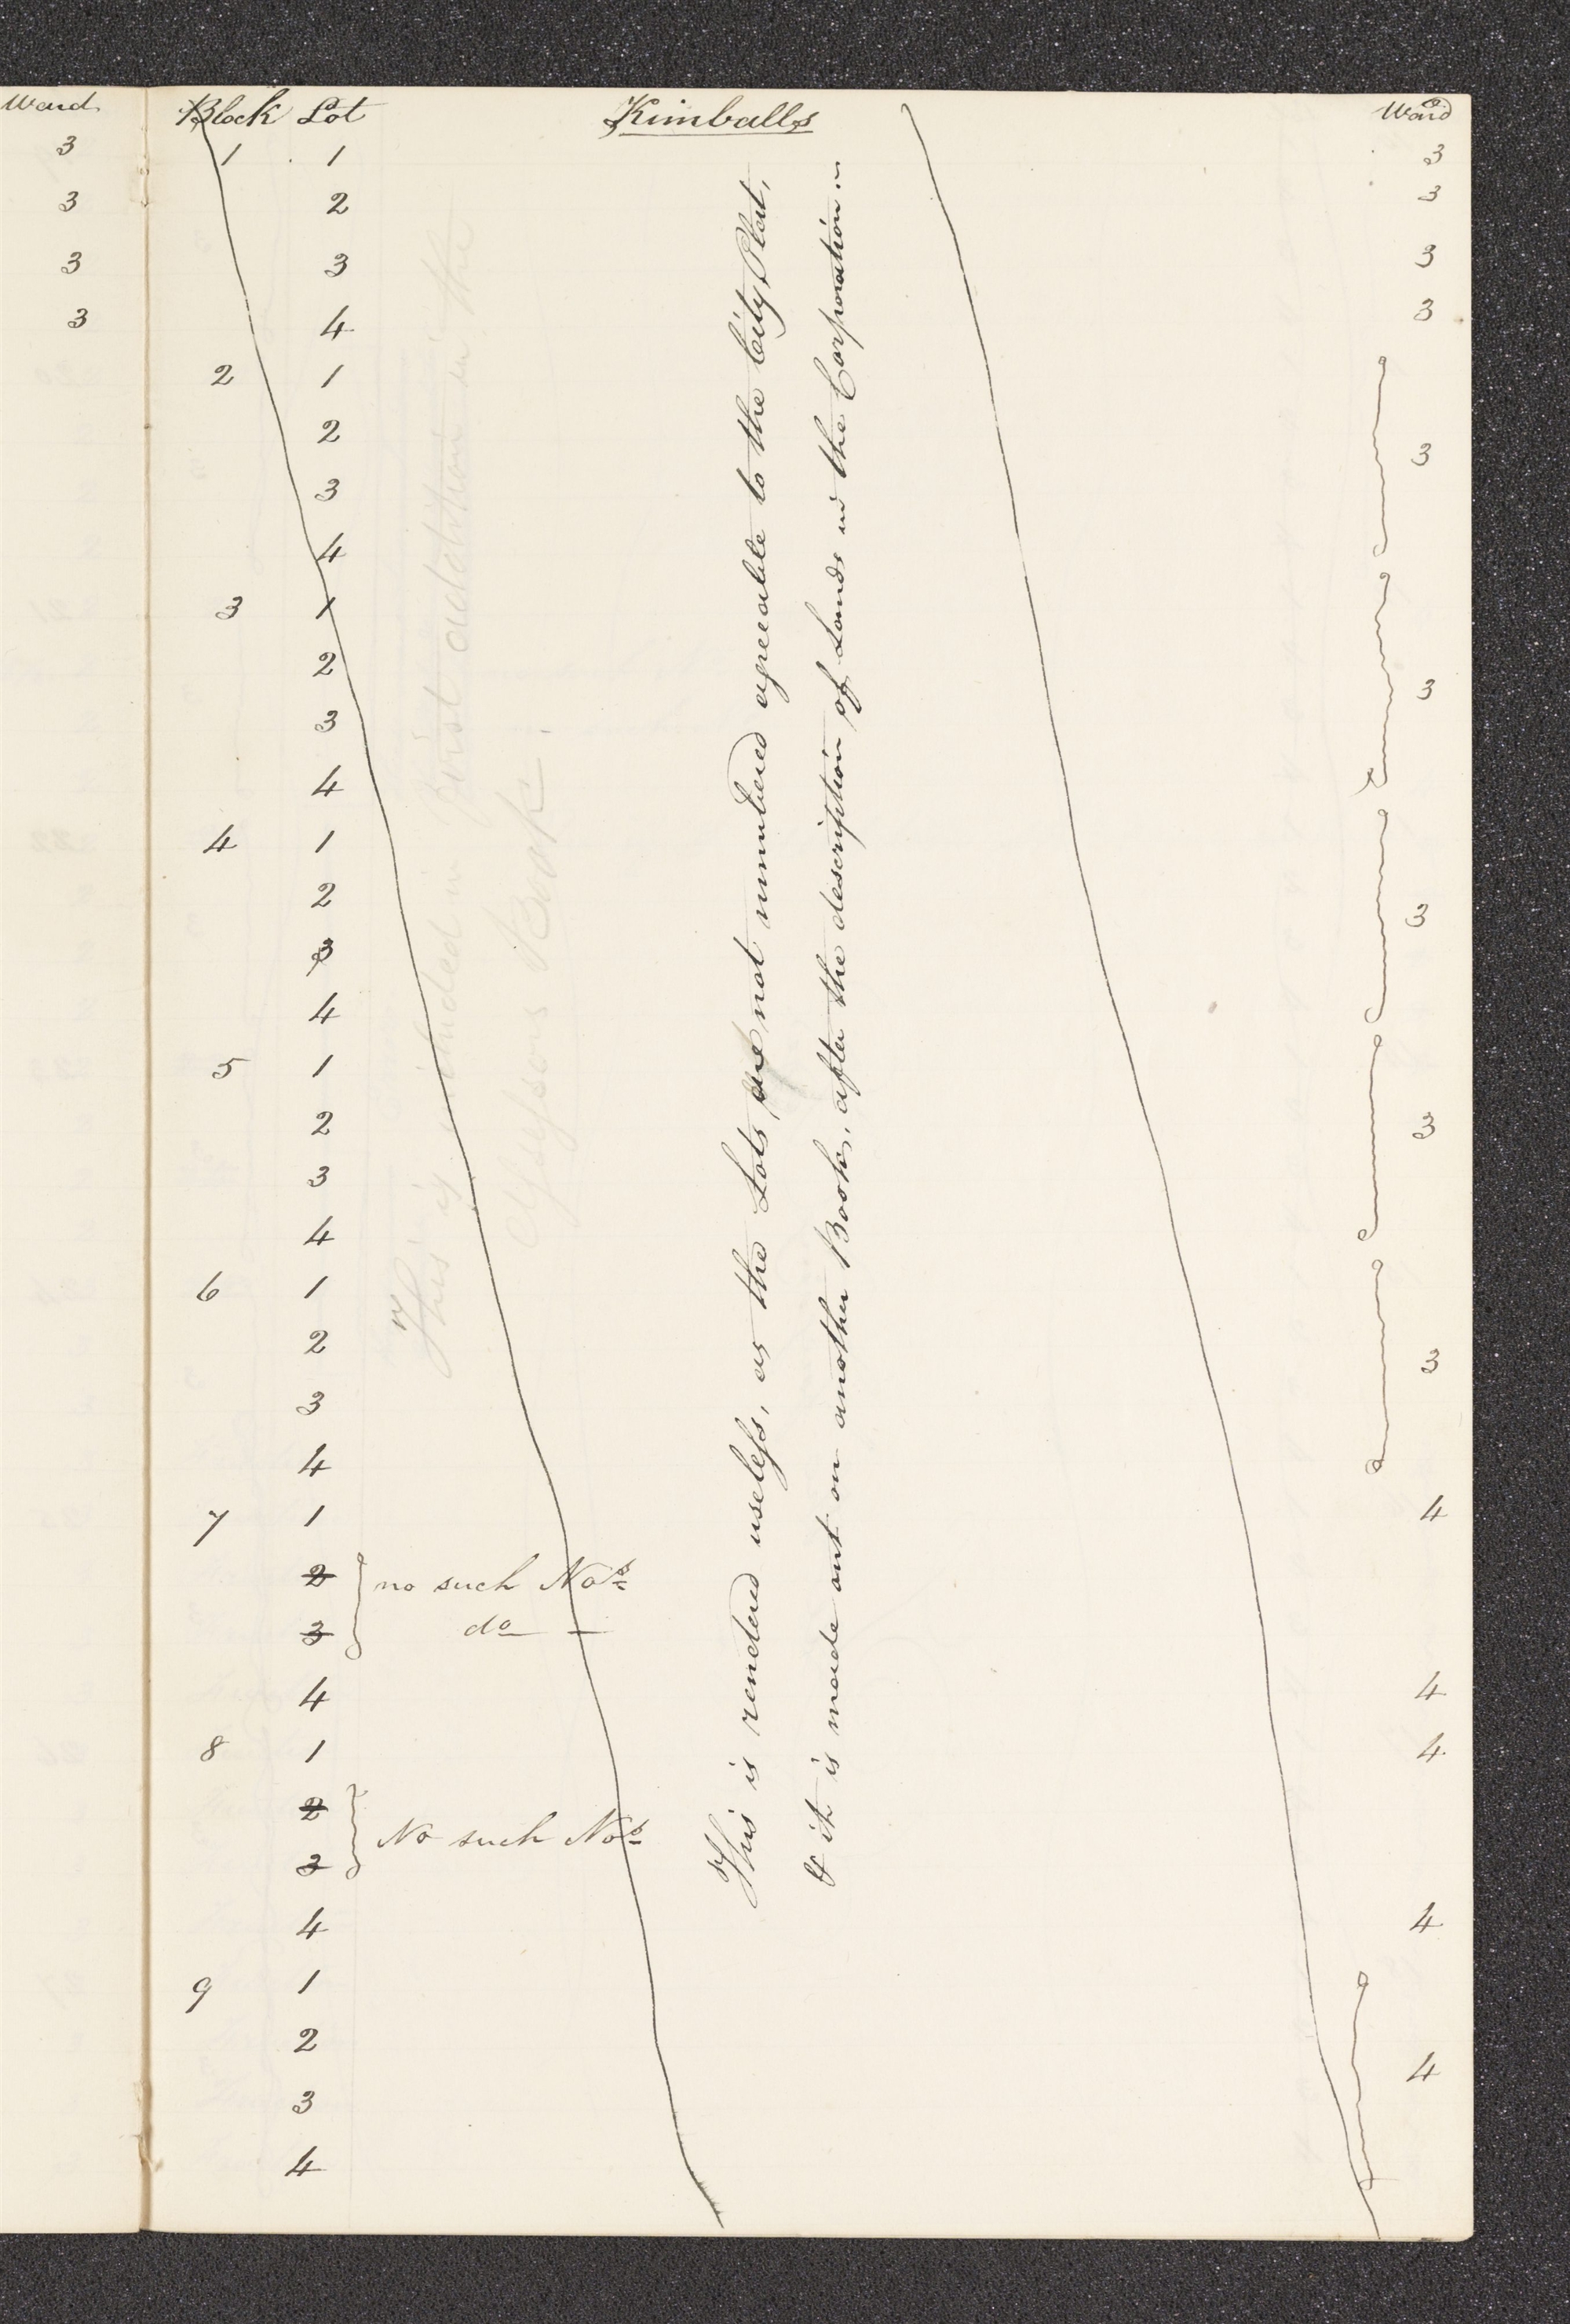 Ward
3
3
3
3
Block Lot Kimballs Ward
1 1 3
2 3
3 3
4 3
2 1
2
3 3
4
3 1
2
3 3
4
4 1
2
3 3
4
5 1
2 3
3
4
6 1
2 3
3
4
7 1 4
2 no such Nos
3 do —
4 4
8 1 4
2 No such Nos
3
4 4
9 1
2
3 4
4
This is rendered useless, as the Lots are not numbered agreeable to the City Plat,
& it is made out on another Book, after the description of Lands in the Corporation
This is included in first addition in the
Assessors Book.